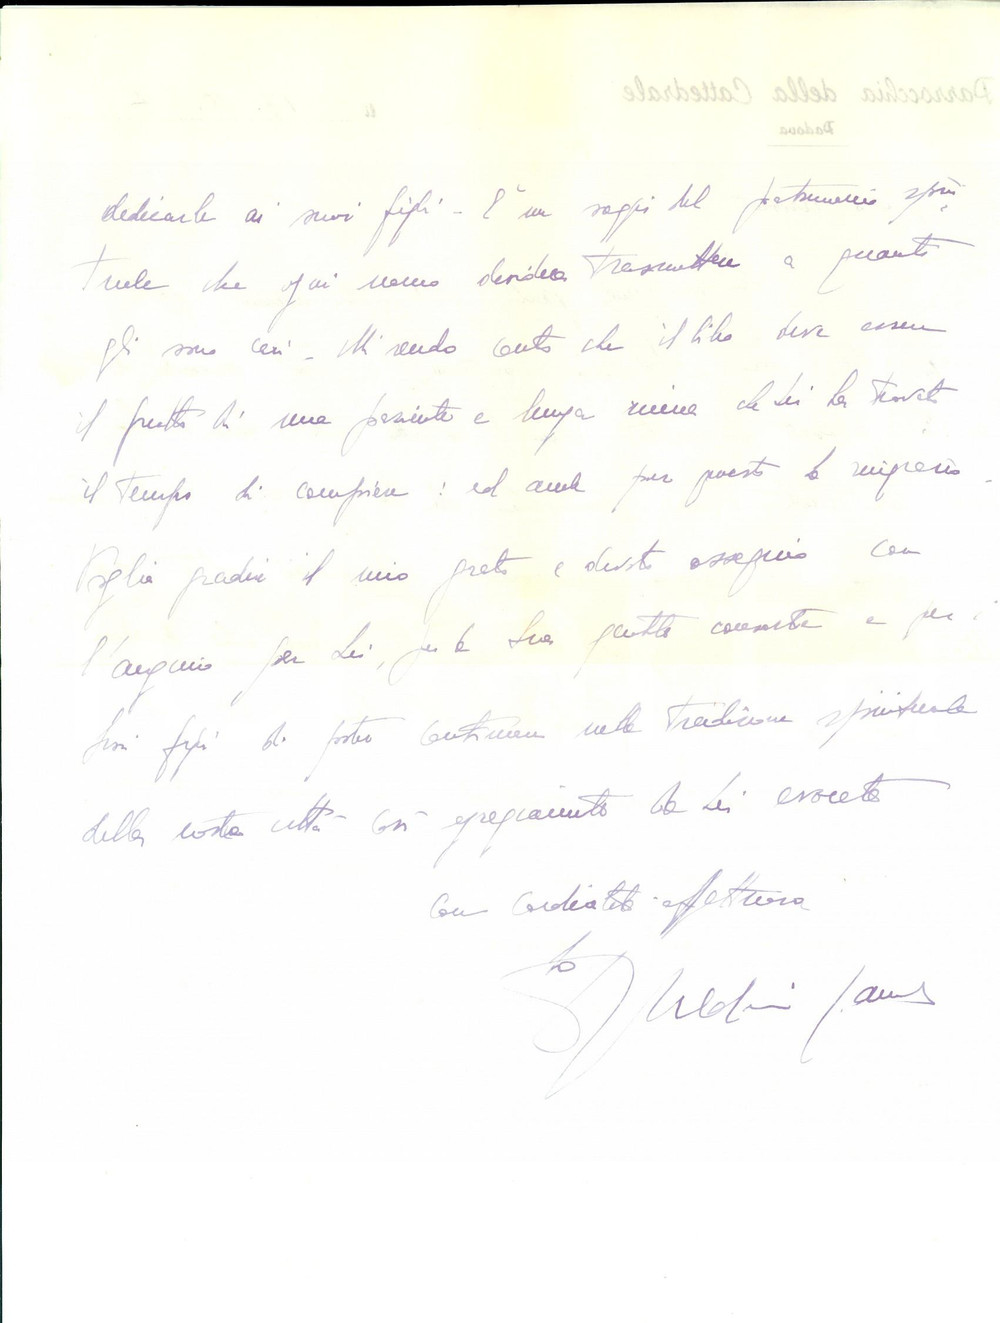 Parrocchia della Cattedrale
Padova
li
dedicarlo ai suoi figli - È un saggio del patrimonio spiri=
tuale che ogni uomo desidera trasmettere a quanti
gli sono cari - Mi rendo conto che il libro deve essere
il frutto di una paziente e lunga ricerca che Lei ha trovato
il tempo di compiere : ed anche per questo La ringrazio -
Voglia gradire il mio grato e devoto ossequio con
l'augurio per Lei, per la Sua gentile consorte e per i
Suoi figli di poter continuare nella tradizione spirituale
della nostra città così egregiamente da Lei evocata
con cordialità affettuosa